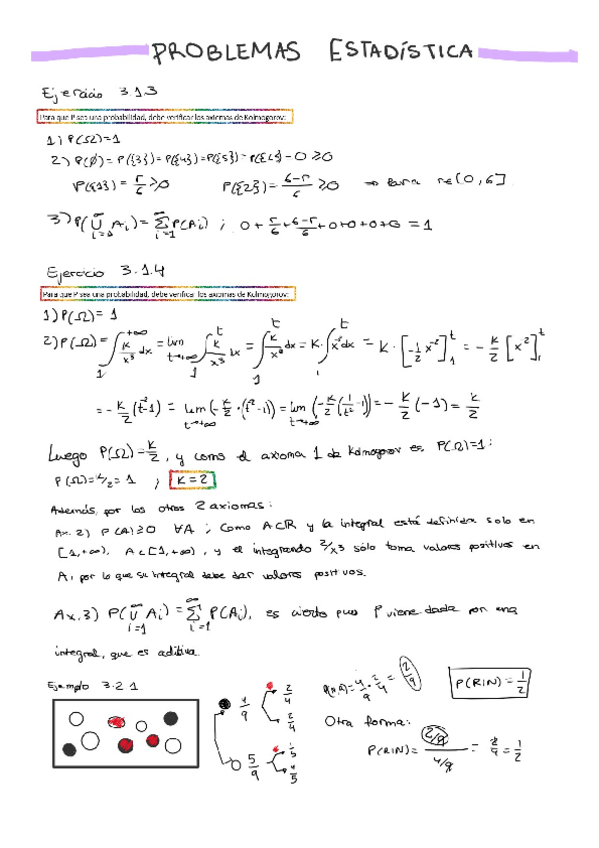 PROBLEMAS ESTADÍSTICA
Ejercicio 3.1.3
Para que P sea una probabilidad, debe verificar los axiomas de Kolmogorov:
1) P(Ω)=1
2) P(∅)=P({3})=P({4})=P({5})=P({6})=0≥0
P({1})=r/6≥0 P({2})=6-r/6≥0 → para r∈[0,6]
3) P(∞∪i=1 Ai)=∞∑i=1 P(Ai) ; 0+r/6+6-r/6+0+0+0+0=1
Ejercicio 3.1.4
Para que P sea una probabilidad, debe verificar los axiomas de Kolmogorov:
1) P(Ω)=1
2) P(Ω)=∫1+∞ k/x³ dx = lim t→+∞ ∫1t k/x³ dx = ∫1t k/x³ dx = k·∫1t x⁻³dx = k·[-1/2 x⁻²]1t = -k/2 [x⁻²]1t
=-k/2(t⁻²-1) = lim t→+∞ (-k/2·(t⁻²-1)) = lim t→+∞ (-k/2(1/t²-1)) = -k/2(-1) = k/2
Luego P(Ω)=k/2, y como el axioma 1 de Kolmogorov es P(Ω)=1:
P(Ω)=k/2=1 ; k=2
Además, por los otros 2 axiomas:
Ax. 2) P(A)≥0 ∀A ; Como A⊂R y la integral está definida solo en
[1,+∞), A⊂[1,+∞), y el integrando 2/x³ sólo toma valores positivos en
A, por lo que su integral debe dar valores positivos.
Ax.3) P(∞∪i=1 Ai)=∞∑i=1 P(Ai), es cierto pues P viene dada por una
integral, que es aditiva.
Ejemplo 3.2.1
4/9 2/4 2/4
5/9 1/5 4/5
=4/9·2/4=2/9
P(R|N)=1/2
Otra forma:
P(R|N)=2/9/4/9=2/4=1/2